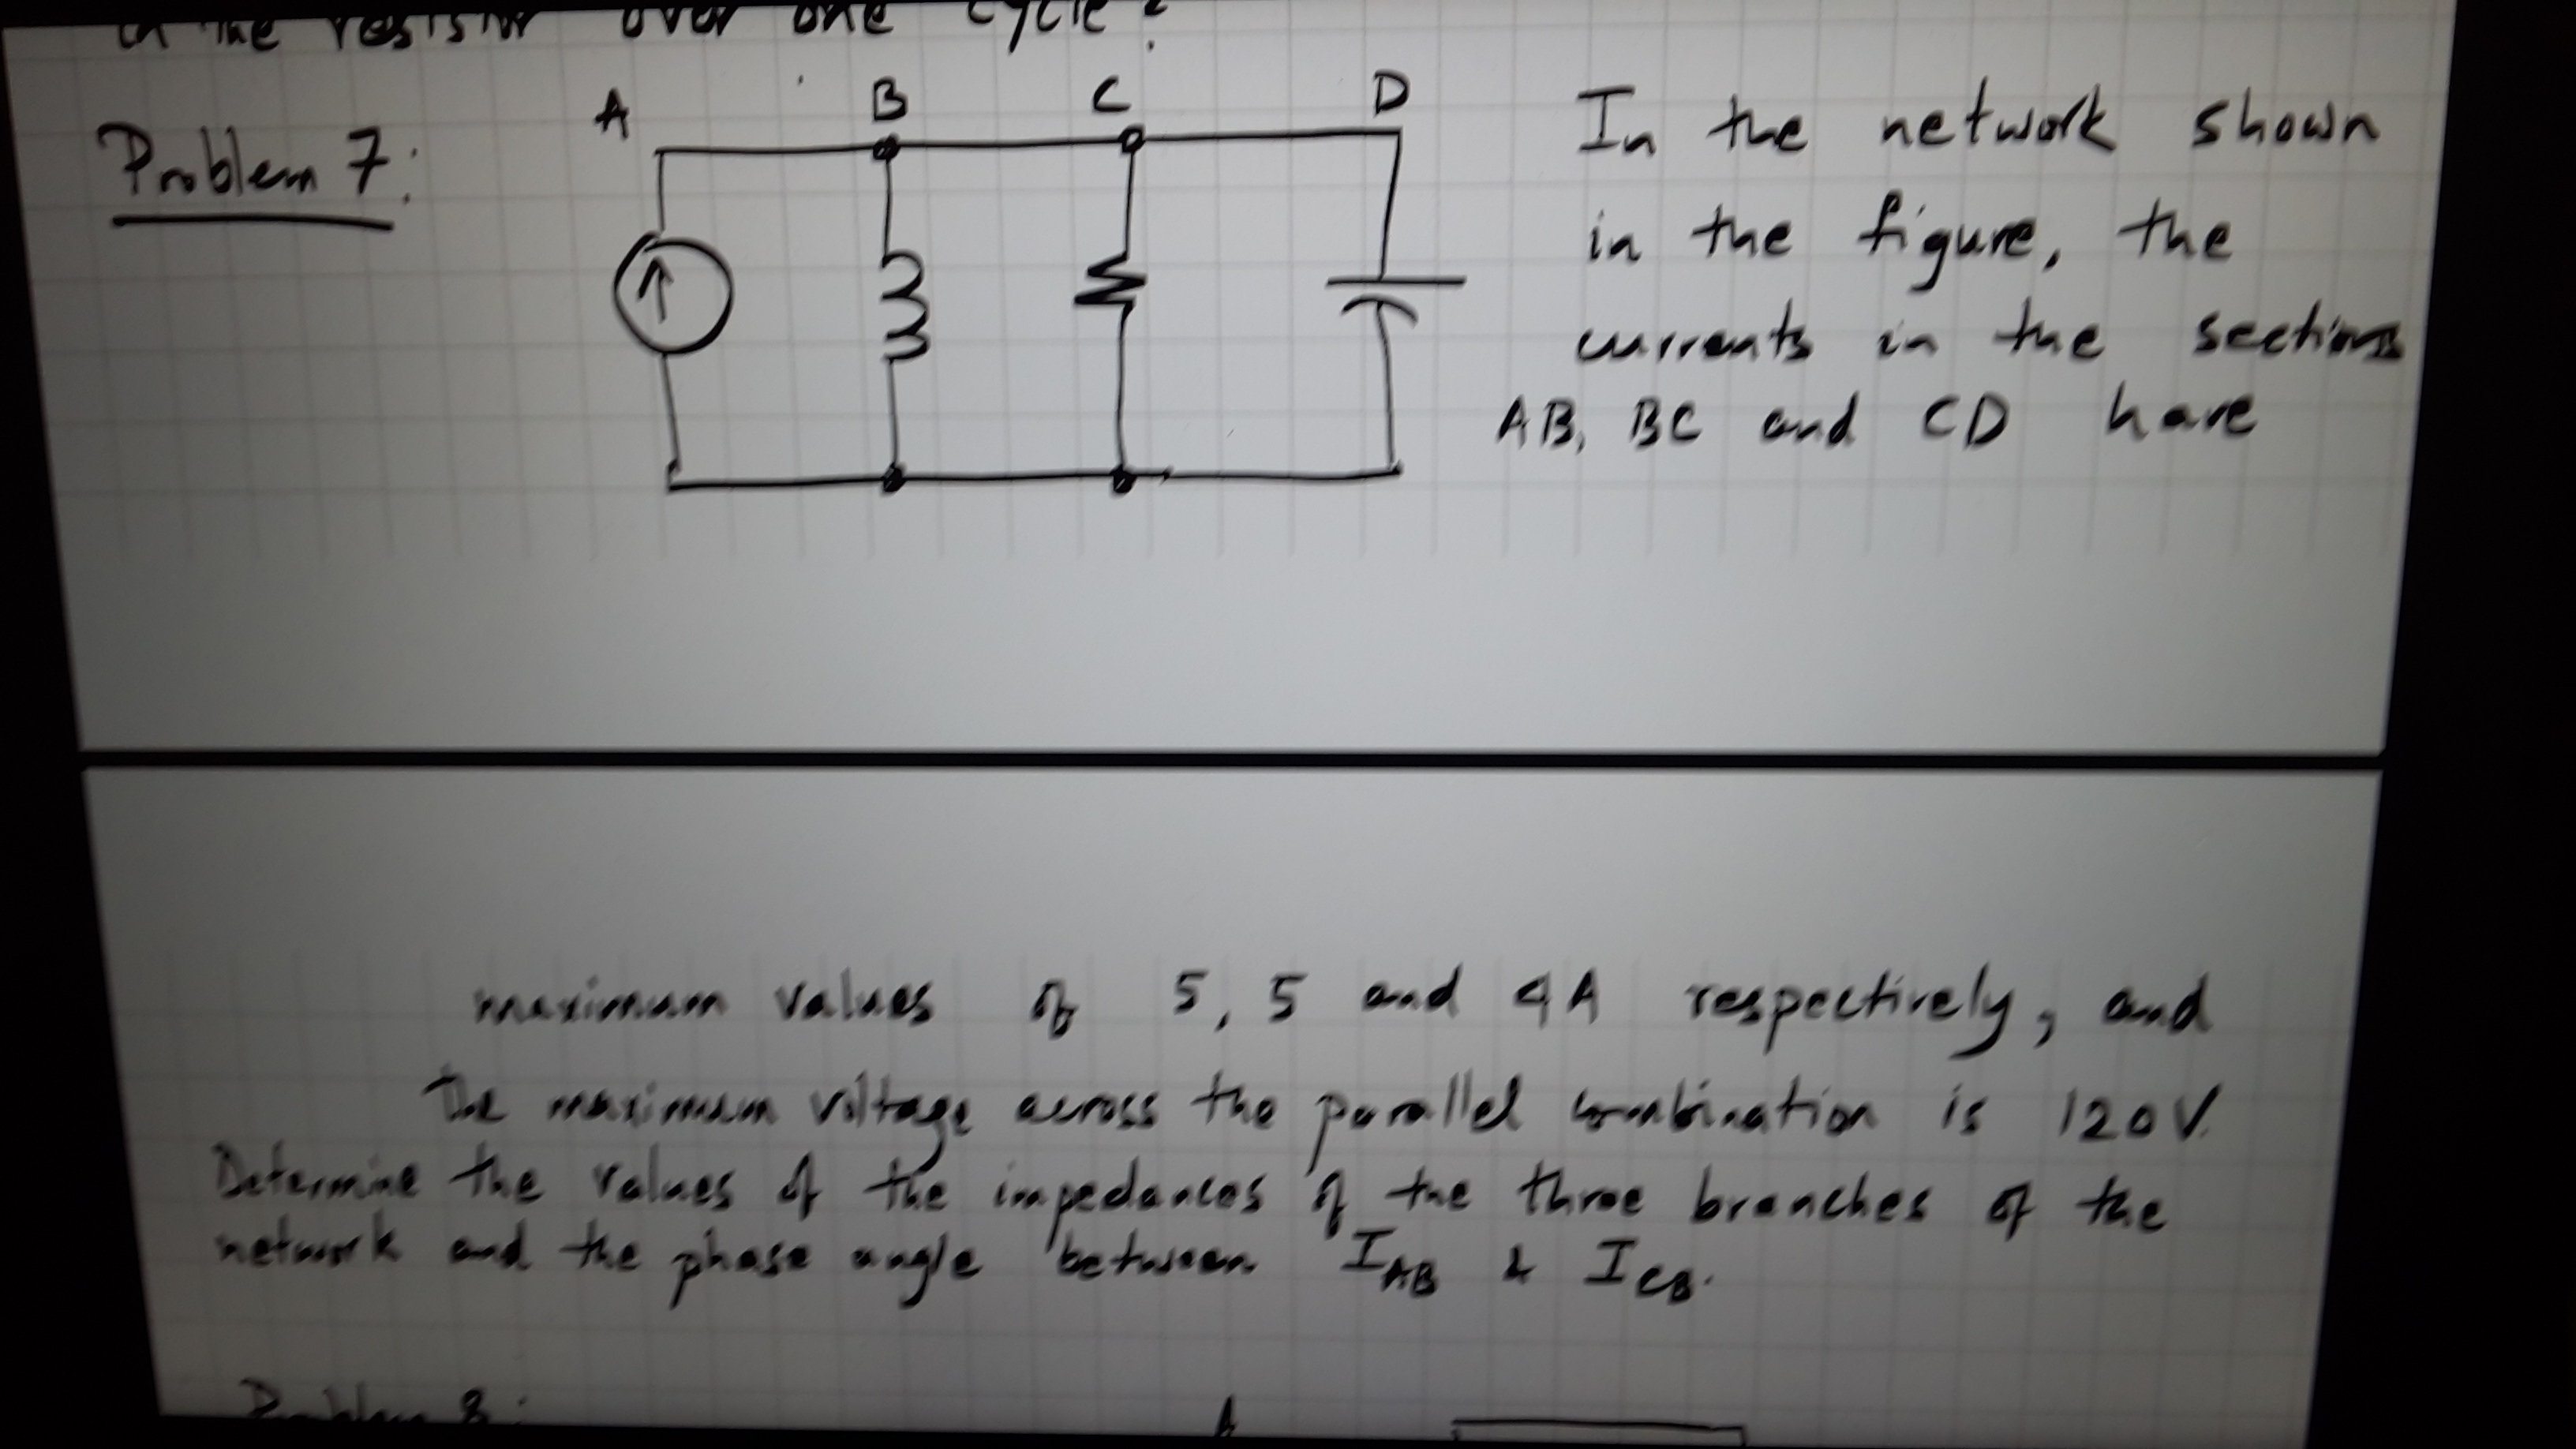 in the resistor over one cycle?
A B C D
Problem 7:
In the network shown
in the figure, the
currents in the sections
AB, BC and CD have
maximum values of 5, 5 and 4A respectively, and
The maximum voltage across the parallel combination is 120V.
Determine the values of the impedances of the three branches of the
network and the phase angle between IAB & ICB.
Problem 8:
A